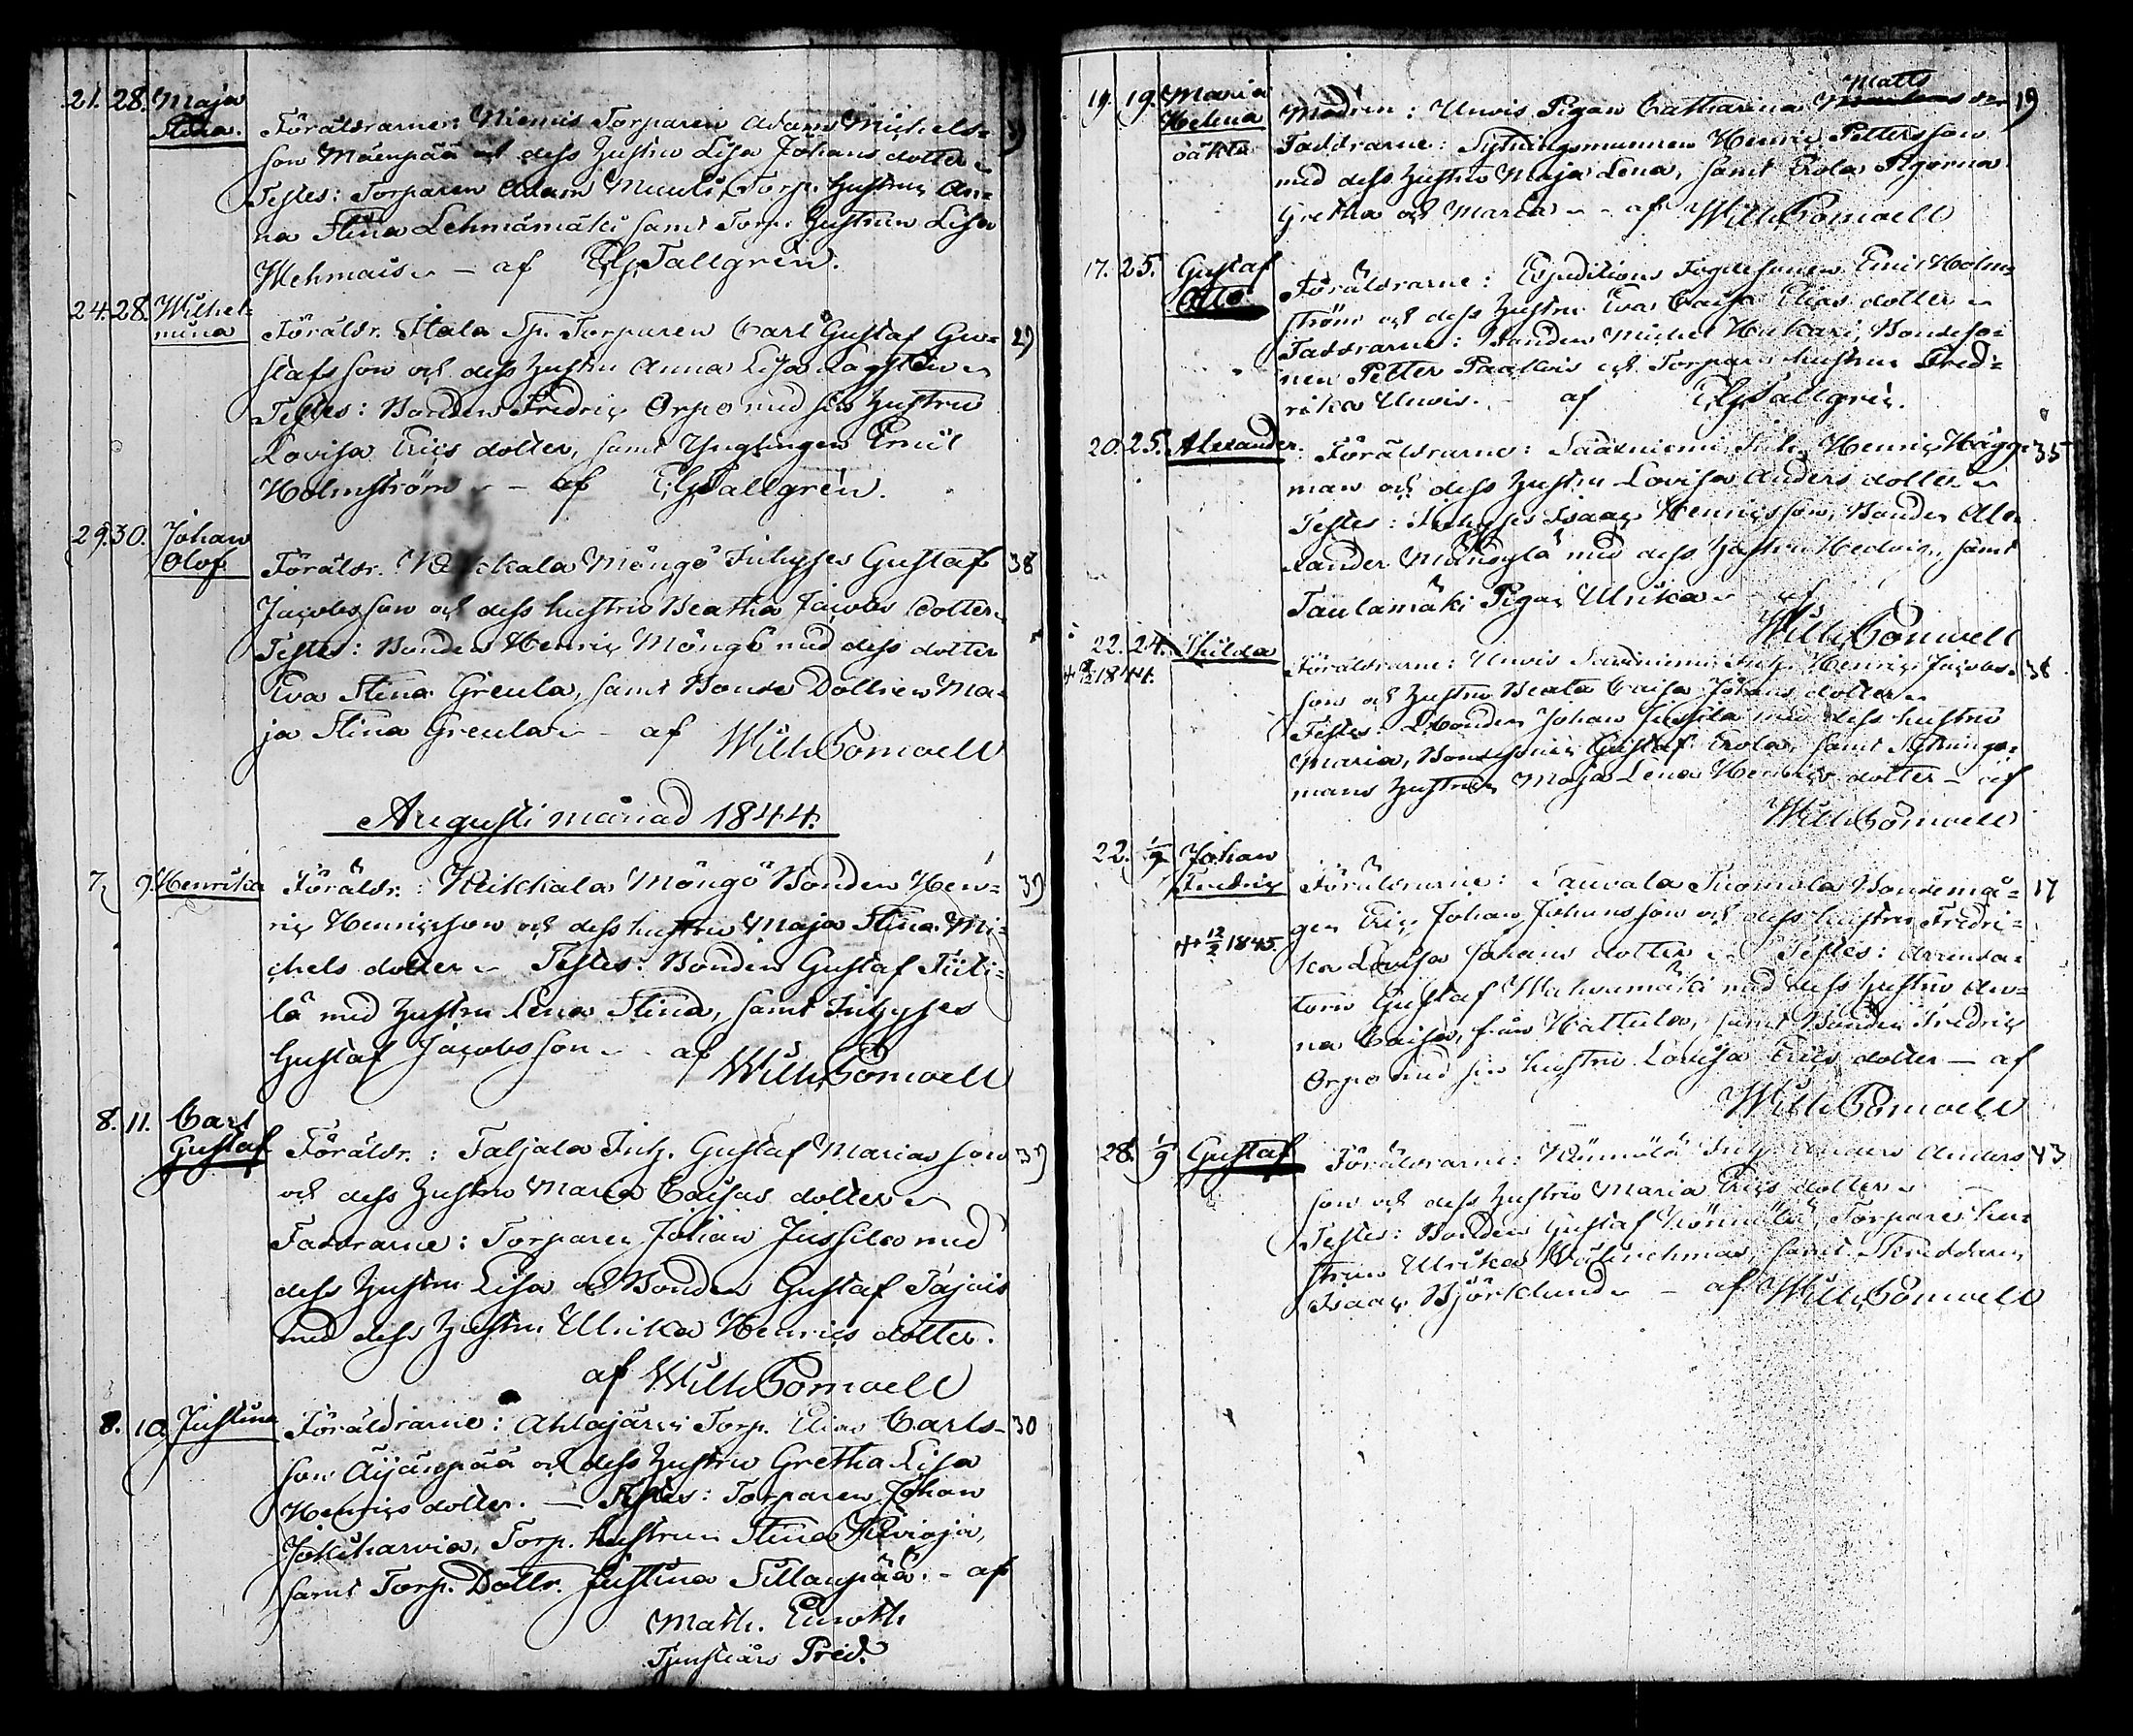 21. 28. Maja
Stina. Föräldrarne: Niemis Torparen Adam Michels-
son Mäenpää och dess hustru Lisa Johans dotter
Testes: Torparen Adam Torp. hustrun An-
na Stina Lehmämäki samt Torp. hustrun Lisa
Wehmais. – af Tallgrén.
24. 28. Wilhel-
mina Föräldr. Itala Sp. Torparen Carl Gustaf Gu- 29
stafsson och dess hustru Anna Lisa
Testes: Bonden Fredric Orpo med sin hustru
Lovisa Erics dotter, samt Ynglingen Emil
Holmström – af Tallgrén.
29. 30. Johan
Olof Föräldr. Kukkala Möngö Inhyses Gustaf 38
Jacobsson och dess hustru Beatha Jacobs dotter
Testes: Bonden Henric Möngö med dess dotter
Eva Stina Greula, samt Bonde Dottren Ma-
ja Stina Greula – af Wilh. Pomoell
Augusti månad 1844.
7. 9. Henrika Föräldr.: Kukkala Möngö Bonden Hen- 39
ric Henricsson och dess hustru Maja Stina Mi-
chels dotter – Testes: Bonden Gustaf
lä med hustru Lena Stina, samt Inhyses
Gustaf Jacobsson – af Wilh. Pomoell
8. 11. Carl
Gustaf Föräldr.: Taljala Inh. Gustaf Marias son
och dess hustru Maria Caisas dotter
Faddrarne: Torparen Johan Jussila med
dess hustru Lisa och Bonden Gustaf
med dess hustru Ulrika Henrics dotter.
af Wilh. Pomoell
8. 10. Justina Föräldrarne: Ahlajärvi Torp. Elias Carls- 30
son Äijänpää och dess hustru Gretha Lisa
Henrics dotter. – Testes: Torparen Johan
Torp. hustrun Stina
samt Torp. Dottr. Justina Sillanpää. – af
Math. Eurokh
Pred.
19. 19. Maria
Helena
oäkta Modren: Unvis Pigan Catharina Matts 19
Faddrarne: Sytningsmannen Henric Pettersson
med dess hustru Maja Lena, samt Erola Pigorna
Gretha och Maria – af Wilh. Pomoell
17. 25. Gustaf
Otto Föräldrarne: Expeditions Fogdesonen Emil Holm-
ström och dess hustru Eva Caisa Elias dotter
Faddrarne: Bonden Michel Hakari, Bondeso-
nen Petter och Torpare hustrun Fred-
rika Unvis. – af Tallgrén.
20. 25. Alexander. Föräldrarne: Saarniemi Inh. Henric Hägg- 35
man och dess hustru Lovisa Anders dotter
Testes: Inhyses Isaac Henricsson, Bonden Ale-
xander med dess hustru Hedvig, samt
Taulamäki Pigan Ulrika – af
Wilh. Pomoell
22. 24. Hilda Föräldrarne: Unvis Inh. Henric Jacobs- 38
1844. son och hustru Beata Caisa Johans dotter
Testes: Bonden Johan Jussila med dess hustru
Maria, Bondesonen Gustaf Erola, samt Sytnings-
mans hustrun Maja Lena Henrics dotter – af
Wilh. Pomoell
22. 1/9 Johan
Fredric Föräldrarne: Sauvala Tuomola Bondemå- 17
gen Eric Johan Johansson och dess hustru Fredri-
+ 12/2 1845. ka Lovisa Johans dotter – Testes: Arrenda-
torn Gustaf Wahramäki med dess hustru An-
na Caisa, från Hattula, samt Bonden Fredric
Orpo med sin hustru Lovisa Erics dotter – af
Wilh. Pomoell
28. 1/9 Gustaf Föräldrarne: Inh. Anders Anders 43
son och dess hustru Maria Erics dotter –
Testes: Bonden Gustaf Torpare hu-
strun Ulrika samt Skräddaren
Isaac Björklund – af Wilh. Pomoell